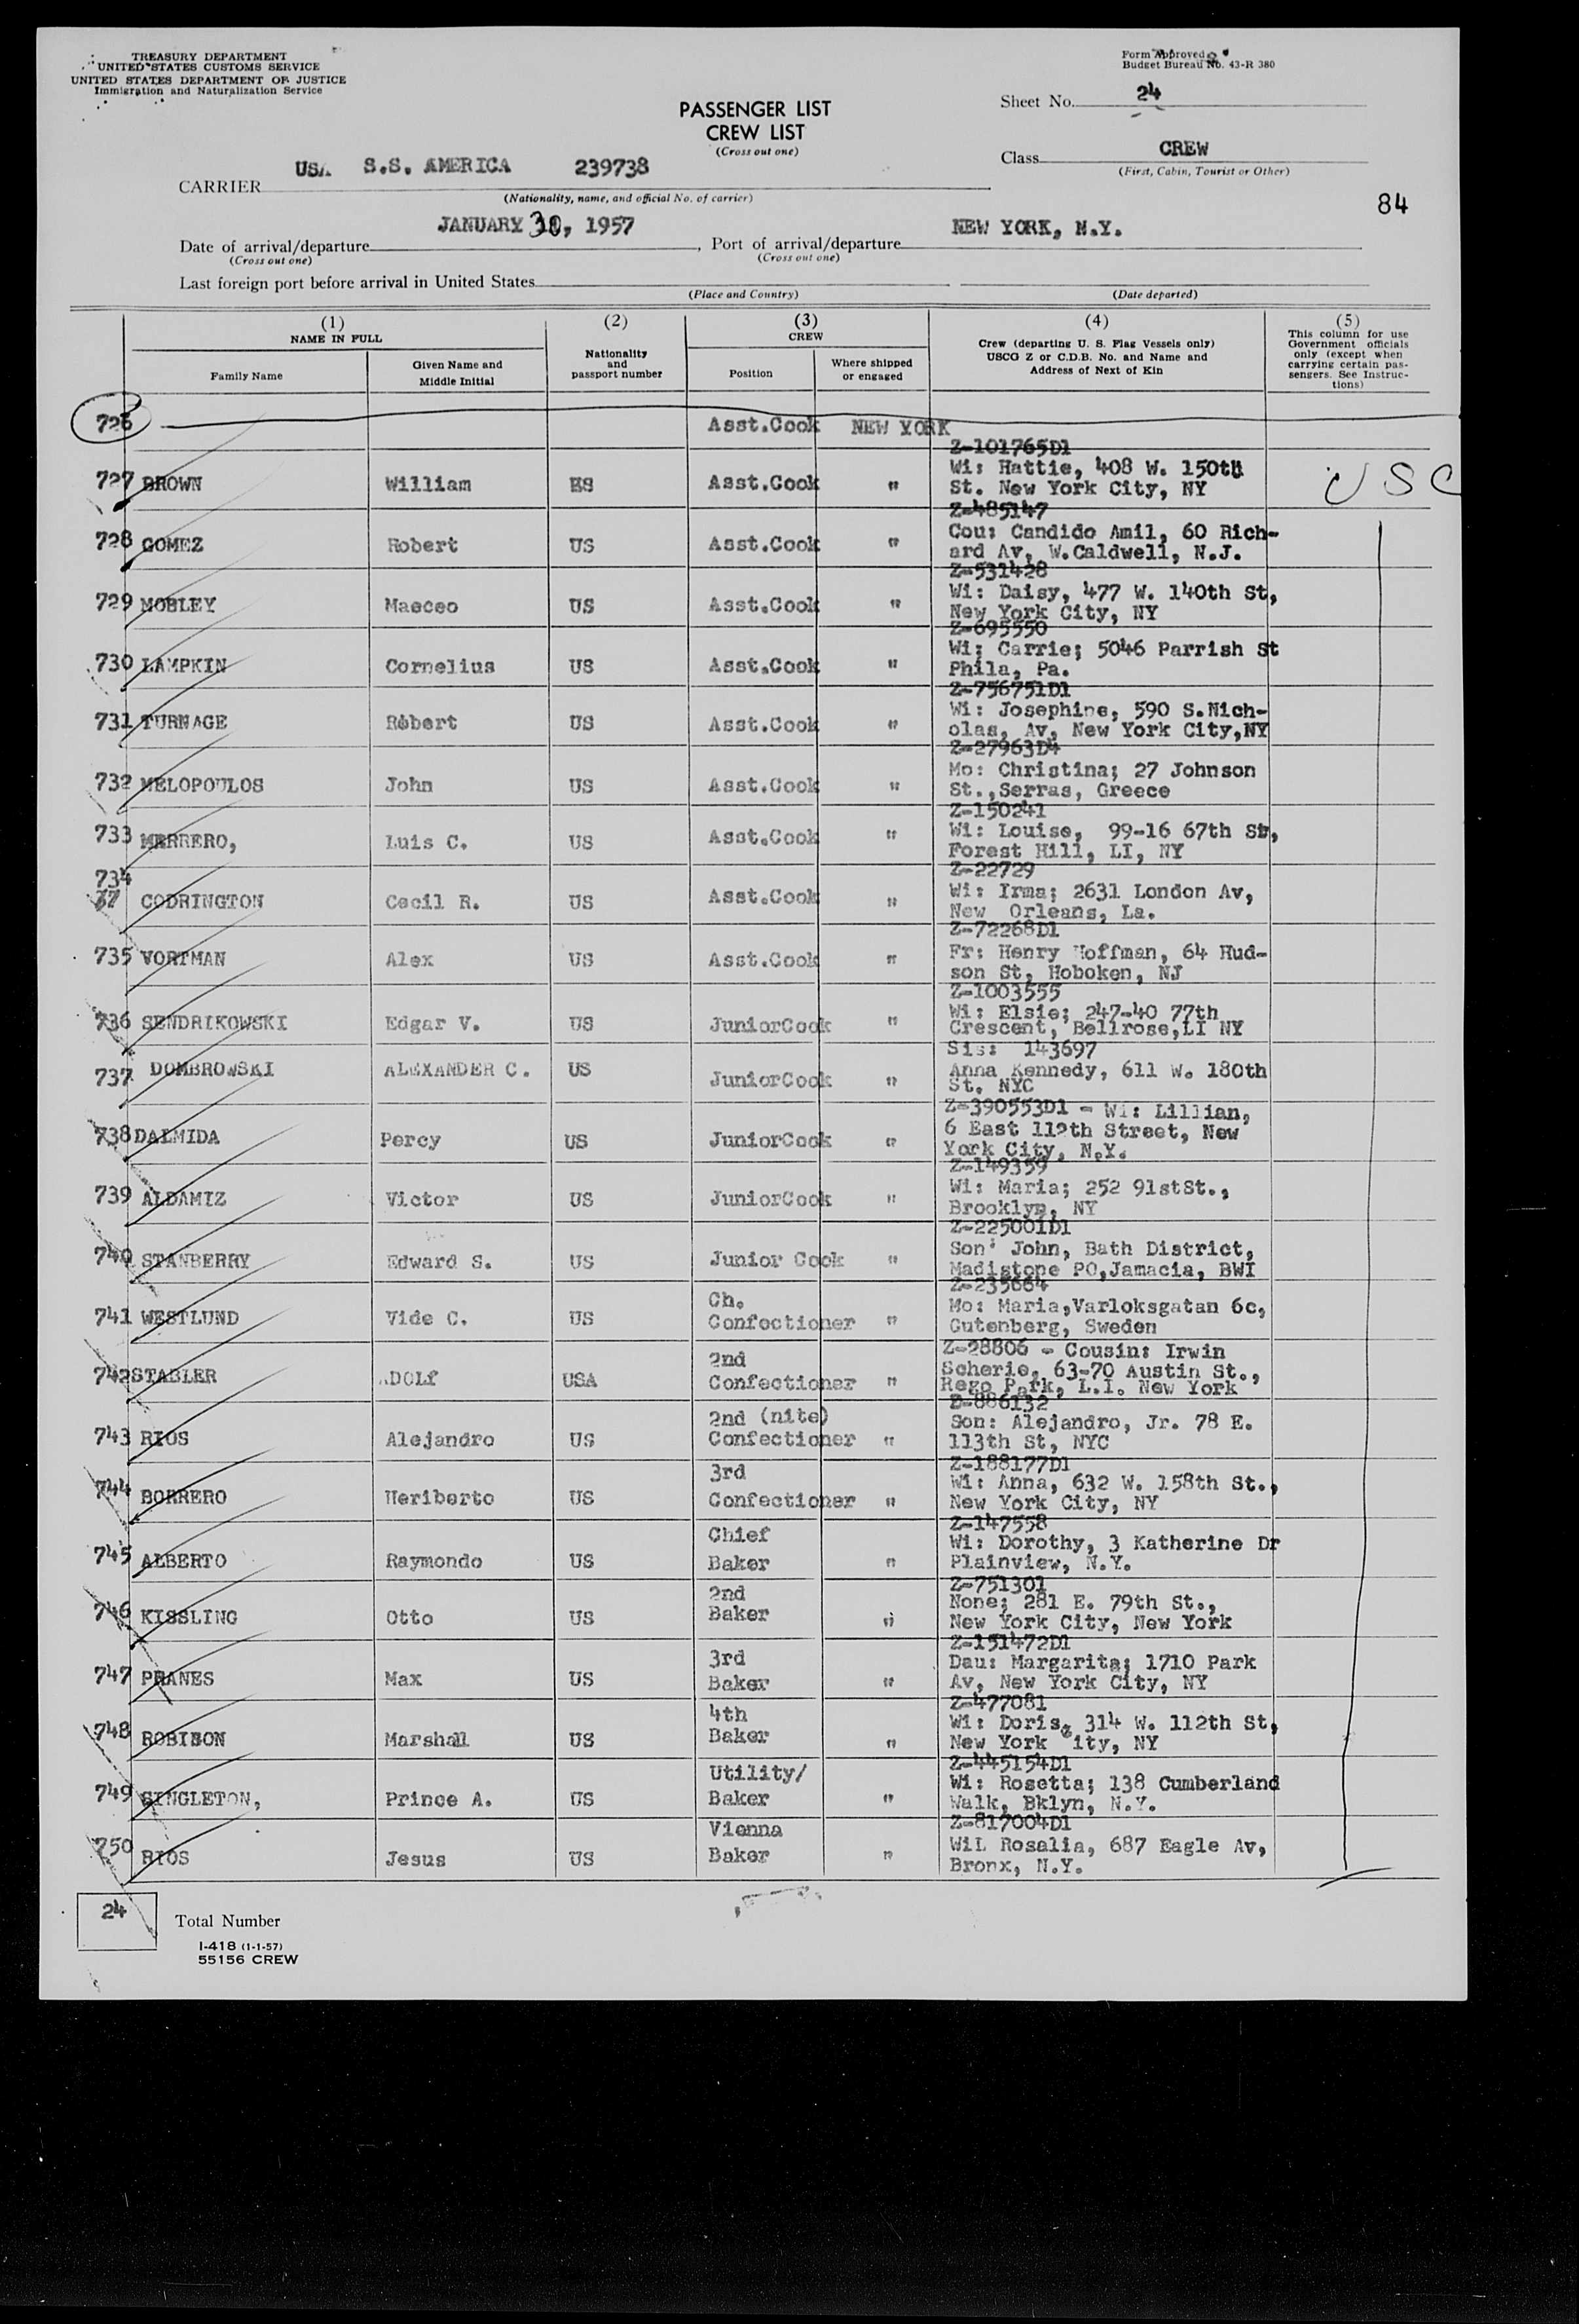 TREASURY DEPARTMENT
UNITED STATES CUSTOMS SERVICE
UNITED STATES DEPARTMENT OF JUSTICE
Immigration and Naturalization Service
Form Approved
Budget Bureau No. 43-R 380
PASSENGER LIST
CREW LIST
(Cross out one)
Sheet No. 24
Class CREW
(First, Cabin, Tourist or Other)
CARRIER USA S.S. AMERICA 239738
(Nationality, name, and official No. of carrier)
84
Date of arrival/departure JANUARY 30, 1957, Port of arrival/departure NEW YORK, N.Y.
(Cross out one) (Cross out one)
Last foreign port before arrival in United States
(Place and Country) (Date departed)
(1) (2) (3) (4) (5)
NAME IN FULL
Family Name
Given Name and
Middle Initial
Nationality
and
passport number
CREW
Position
Where shipped
or engaged
Crew (departing U. S. Flag Vessels only)
USCG Z or C.D.B. No. and Name and
Address of Next of Kin
This column for use
Government officials
only (except when
carrying certain pas-
sengers. See Instruc-
tions)
726 Asst.Cook NEW YORK
Z-101765D1
727 BROWN William ES Asst.Cook " Wi: Hattie, 408 W. 150th
St. New York City, NY
USC
Z-485147
728 GOMEZ Robert US Asst.Cook " Cou: Candido Amil, 60 Rich-
ard Av, W.Caldwell, N.J.
Z-531428
729 MOBLEY Maeceo US Asst.Cook " Wi: Daisy, 477 W. 140th St,
New York City, NY
Z-695550
730 LAMPKIN Cornelius US Asst.Cook " Wi: Carrie; 5046 Parrish St
Phila, Pa.
Z-756751D1
731 TURNAGE Robert US Asst.Cook " Wi: Josephine, 590 S.Nich-
olas, Av, New York City,NY
Z-27963D4
732 MELOPOULOS John US Asst.Cook " Mo: Christina; 27 Johnson
St.,Serras, Greece
Z-150241
733 MERRERO, Luis C. US Asst.Cook " Wi: Louise, 99-16 67th St,
Forest Hill, LI, NY
Z-22729
734 CODRINGTON Cecil R. US Asst.Cook " Wi: Irma; 2631 London Av,
New Orleans, La.
Z-72268D1
735 VORTMAN Alex US Asst.Cook " Fr: Henry Hoffman, 64 Hud-
son St, Hoboken, NJ
Z-1003555
736 SENDRIKOWSKI Edgar V. US JuniorCook " Wi: Elsie; 247-40 77th
Crescent, Bellrose,LI NY
Sis: 143697
737 DOMBROWSKI ALEXANDER C. US JuniorCook " Anna Kennedy, 611 W. 180th
St. NYC
Z-390553D1 - Wi: Lillian,
738 DALMIDA Percy US JuniorCook " 6 East 112th Street, New
York City, N.Y.
Z-149359
739 ALDAMIZ Victor US JuniorCook " Wi: Maria; 252 91stSt.,
Brooklyn, NY
Z-225001D1
740 STANBERRY Edward S. US Junior Cook " Son: John, Bath District,
Madistone PO,Jamacia, BWI
Z-235664
741 WESTLUND Vide C. US Ch.
Confectioner " Mo: Maria,Varloksgatan 6c,
Gutenberg, Sweden
Z-28806 - Cousin: Irwin
742 STABLER ADOLf USA 2nd
Confectioner " Scherie, 63-70 Austin St.,
Rego Park, L.I. New York
D-886132
743 RIOS Alejandro US 2nd (nite)
Confectioner " Son: Alejandro, Jr. 78 E.
113th St, NYC
Z-188177D1
744 BORRERO Heriberto US 3rd
Confectioner " Wi: Anna, 632 W. 158th St.,
New York City, NY
Z-147558
745 ALBERTO Raymondo US Chief
Baker " Wi: Dorothy, 3 Katherine Dr
Plainview, N.Y.
Z-751301
746 KISSLING Otto US 2nd
Baker " None; 281 E. 79th St.,
New York City, New York
Z-151472D1
747 PRANES Max US 3rd
Baker " Dau: Margarita; 1710 Park
Av, New York City, NY
Z-477081
748 ROBISON Marshall US 4th
Baker " Wi: Doris, 314 W. 112th St,
New York City, NY
Z-445154D1
749 SINGLETON, Prince A. US Utility/
Baker " Wi: Rosetta; 138 Cumberland
Walk, Bklyn, N.Y.
Z-817004D1
750 RIOS Jesus US Vienna
Baker " WiL Rosalia, 687 Eagle Av,
Bronx, N.Y.
24 Total Number
I-418 (1-1-57)
55156 CREW